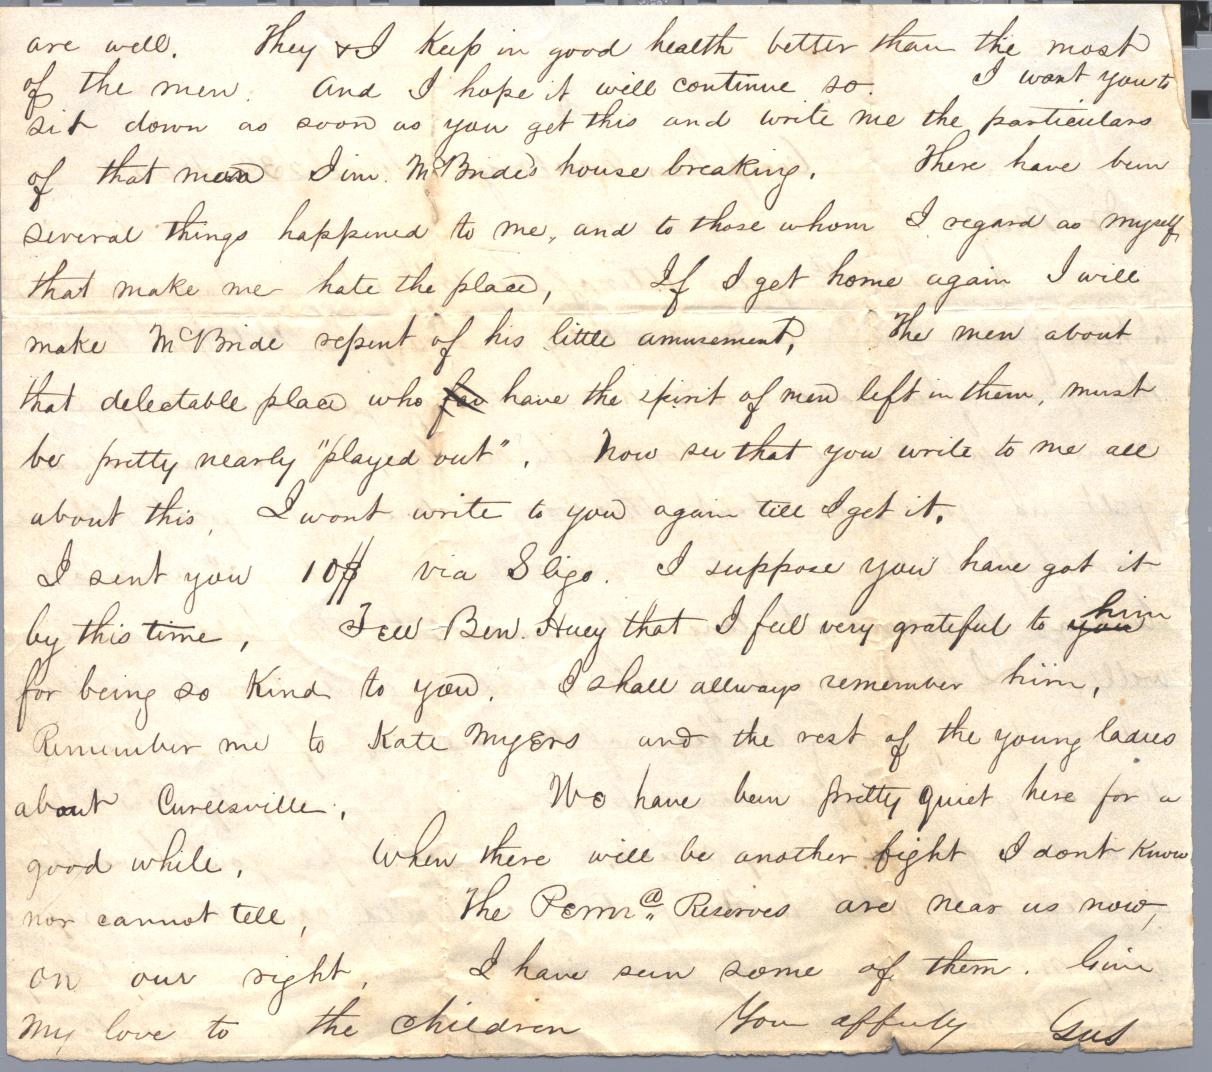 are well. They & I Keep in good health better than the most
of the men. And I hope it will continue so. I want you to
sit down as soon as you get this and write me the particulars
of that man Jim. McBride's house breaking. There have been
several things happened to me, and to those whom I regard as myself
that make me hate the place, If I get home again I will
make McBride repent of his little amusement, The men about
that delectable place who have the spirit of men left in them, must
be pretty nearly "played out". Now see that you write to me all
about this, I wont write to you again till I get it.
I sent you 10$ via Sligo. I suppose you have got it
by this time, Tell Ben. Huey that I feel very grateful to you him
for being so Kind to you. I shall allways remember him,
Remember me to Kate Myers and the rest of the young ladies
about Curllsville, We have been pretty quiet here for a
good while, When there will be another fight I dont Know
nor cannot tell, The Penna. Reserves are near us now,
on our right, I have seen some of them. Give
My love to the children Your affctly Gus